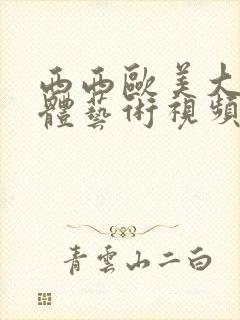 西西歐美大
體藝術視頻
青雲山二白